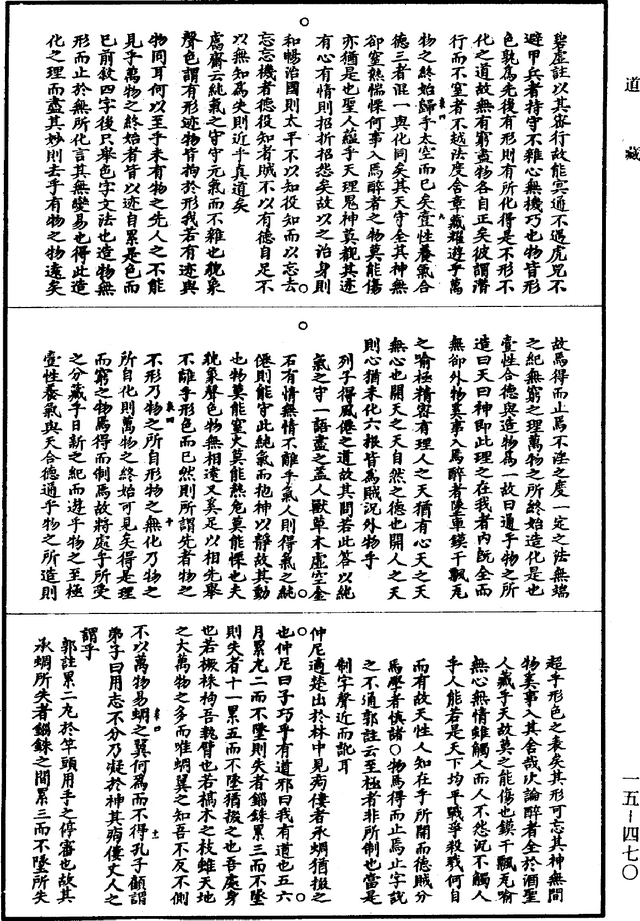 道藏
碧虛註以其密行故能冥通不遇虎兕不
避甲兵者持守不雜心無機巧也物皆形
色孰為先後有形則有所化得是不形不
化之道故無有窮盡物各自正矣彼謂潛
行而不窒者不越法度含章藏耀遊乎萬
物之終始歸乎太空而已矣壹性養氣合
德三者混一與化同矣其天守全其神無
郤窒熱惴慄何事入焉醉者之物莫能傷
亦猶是也聖人蘊乎天理鬼神莫觀其迹
有心有情則招折招怨矣故以之治身則
和暢治國則太平不以知役知而以忘去
忘忘機者德役知者賊不以有德自足不
以無知為失則近乎真道矣
鬳齋云純氣之守守元氣而不雜也貌象
聲色謂有形迹物皆拘於形我若有迹與
物同耳何以至乎未有物之先人之不能
見乎萬物之終始者皆以迹自累是色而
已前敘四字後只舉色字文法也造物無
形而止於無所化言其無變易也得此造
化之理而盡其妙則去乎有物之物遠矣
故焉得而止焉不淫之度一定之法無端
之紀無窮之理萬物之所終始造化是也
壹性合德與造物為一故曰通乎物之所
造曰天曰神即此理之在我者內既全而
無郤外物奚事入焉醉者墜車鏌干飄瓦
之喻極精密有理人之天猶有心天之天
無心也開天之天自然之德也開人之天
則心猶未化六根皆為賊況外物乎
列子得風僊之道故其問若此答以純
氣之守一語盡之蓋人獸草木虛空金
石有情無情不離乎氣人則得氣之純
僊則能守此純氣而抱神以靜故其動
也物莫能窒火莫能熱危莫能慄也夫
貌象聲色物無相遠又奚足以相先舉
不離乎形色而已然則所謂先者物之
不形乃物之所自形物之無化乃物之
所自化則萬物之終始可見矣得是理
而窮之物焉得而制焉故將處乎所受
之分藏乎日新之紀而遊乎物之至極
壹性養氣與天合德通乎物之所造則
超乎形色之表矣其形可忘其神無間
物奚事入其舍哉次論醉者全於酒聖
人藏乎天故莫之能傷也鏌干飄瓦喻
無心無情雖觸人而人不怨況不觸人
乎人能若是天下均平戰爭殺戮何自
而有故天性人知在乎所開而德賊分
焉學者慎諸○物焉得而止焉止字說
之不通郭註云至極者非所制也當是
制字聲近而訛耳
仲尼適楚出於林中見痀僂者承蜩猶掇之
也仲尼曰子巧乎有道邪曰我有道也五六
月累丸二而不墜則失者錙銖累三而不墜
則失者十一累五而不墜猶掇之也吾處身
也若橛株枸吾執臂也若槁木之枝雖天地
之大萬物之多而唯蜩翼之知吾不反不側
不以萬物易蜩之翼何為而不得孔子顧謂
弟子曰用志不分乃凝於神其痀僂丈人之
謂乎
郭註累二丸於竿頭用手之停審也故其
承蜩所失者錙銖之間累三而不墜所失
一五-四七〇